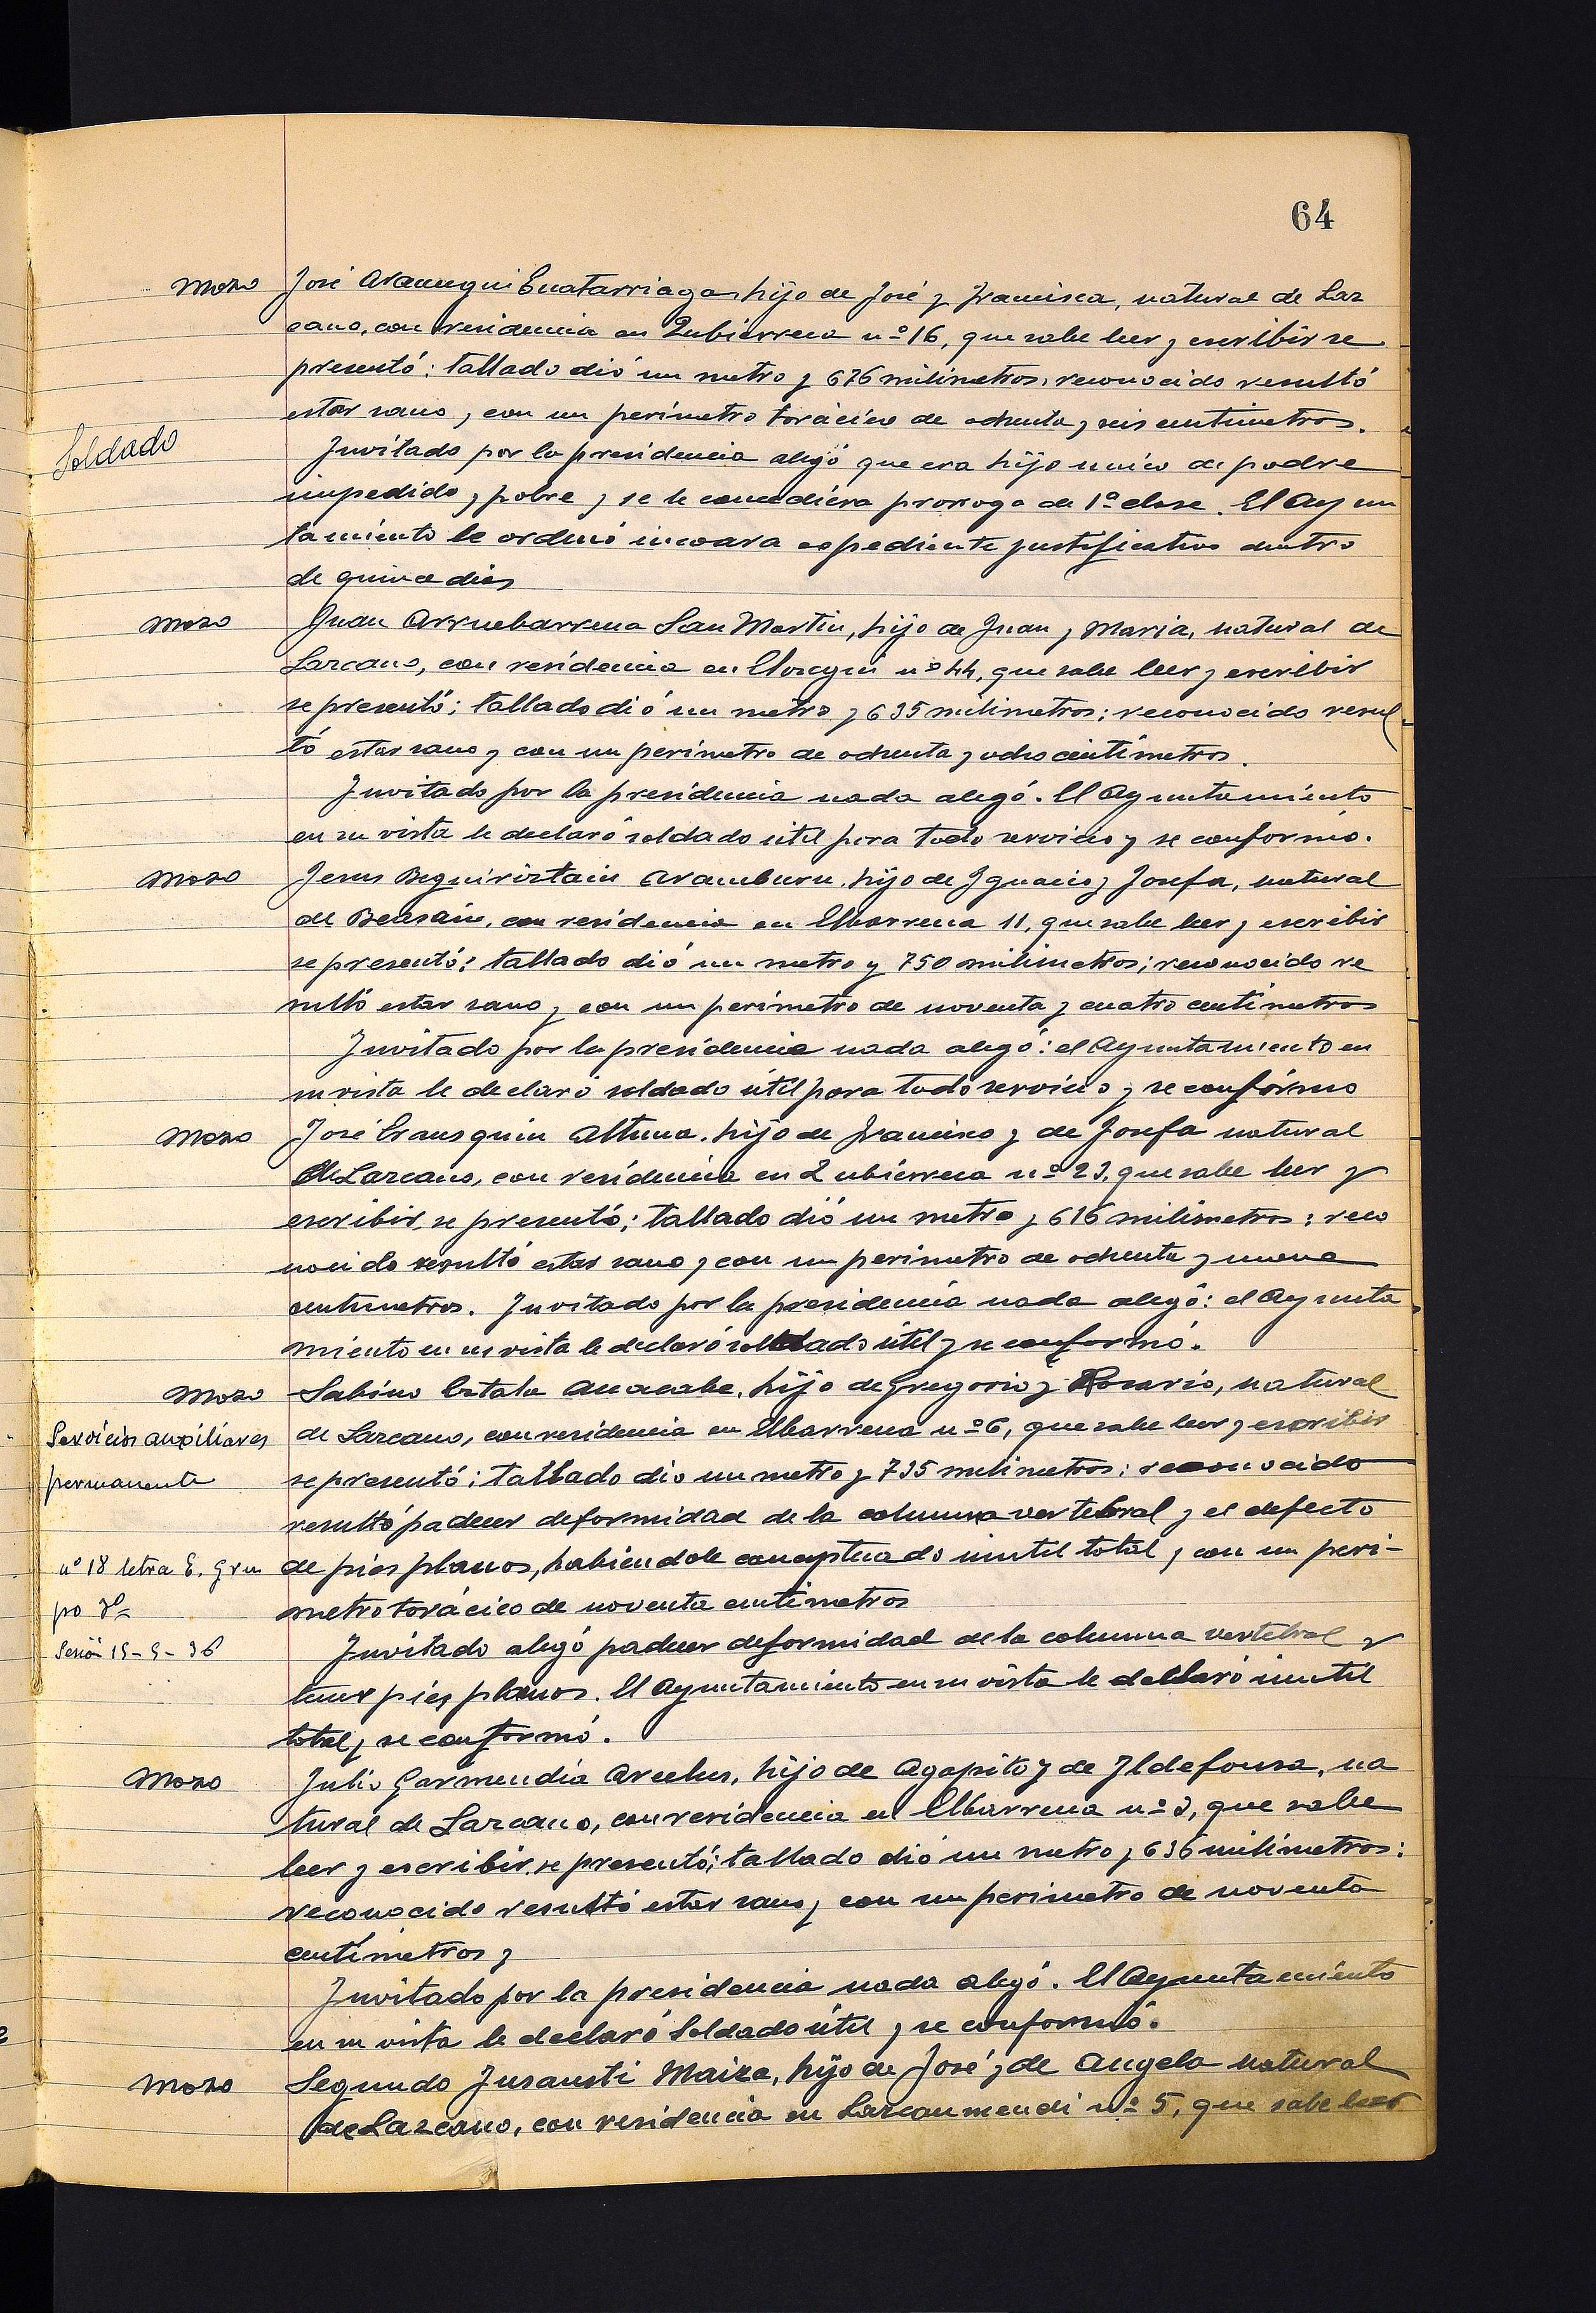 64
Mozo José Aramugui Euatarriaga, hijo de José y Francisca, natural de Laz
cano, con residencia en Zubierreca nº 16, que sabe leer y escribir se
presentó: tallado dió un metro y 676 milimetros, reconocido resultó
estar sano y con un perímetro torácico de ochenta y seis centimetros.
Soldado
Invitado por la presidencia alegó que era hijo unico de padre
impedido y pobre y se le concediera prorroga de 1ª clase. El Ayun
tamiento le ordenó incoara espediente justificativo dentro
de quince dias
Mozo Juan Arruebarrena San Martin, hijo de Juan y Maria, natural de
Lazcano, con residencia en nº 44, que sabe leer y escribir
se presentó; tallado dió un metro y 635 milimetros; reconocido resul
tó estar sano y con un perímetro de ochenta y ocho centímetros.
Invitado por la presidencia nada alegó. El Ayuntamiento
en su vista le declaró soldado útil para todo servicio y se conformó.
Mozo Jesus Beguiristain Aramburu, hijo de Ignacio y Josefa, natural
de Beasain, con residencia en Elbarrena 11, que sabe leer y escribir
se presentó; tallado dió un metro y 750 milimetros; reconocido re
sultó estar sano y con un perímetro de noventa y cuatro centímetros
Invitado por la presidencia nada alegó: el Ayuntamiento en
su vista le declaró soldado útil para todo servicio y se conformo
Mozo José Erausquin Altuna, hijo de Francisco y de Josefa natural
de Lazcano, con residencia en Zubierreca nº 23, que sabe leer y
escribir, se presentó; tallado dió un metro y 616 milimetros; reco
nocido resultó estar sano y con un perimetro de ochenta y nueve
centimetros. Invitado por la presidencia nada alegó: el Ayunta
miento en su vista le declaró soldado útil y se conformó.
Mozo Sabino Estala Anacabe, hijo de Gregorio y Rosario, natural
Servicios auxiliares de Lazcano, con residencia en Elbarrena nº 6, que sabe leer y escribir
permanente se presentó; tallado dio un metro y 735 milimetros; reconocido
resultó padecer deformidad de la columna vertebral y el defecto
nº 18 letra E. Gru de pies planos, habiendole conceptuado inutil total y con un perí-
po metro torácico de noventa centimetros
Sesión 15-5-36 Invitado alegó padecer deformidad de la columna vertebral y
tener piés planos. El Ayuntamiento en su vista le declaró inutil
total y se conformó.
Mozo Julio Garmendia Arcelus, hijo de Agapito y de Ildefonsa, na
tural de Lazcano, con residencia en Elbarrena nº 3, que sabe
leer y escribir, se presentó; tallado dió un metro y 636 milímetros:
reconocido resultó estar sano y con un perimetro de noventa
centímetros y
Invitado por la presidencia nada alegó. El Ayuntamiento
en su vista le declaró soldado útil y se conformó.
Mozo Segundo Insausti Maiza, hijo de José y de Angela natural
de Lazcano, con residencia en Lazcaomendi nº 5, que sabe leer